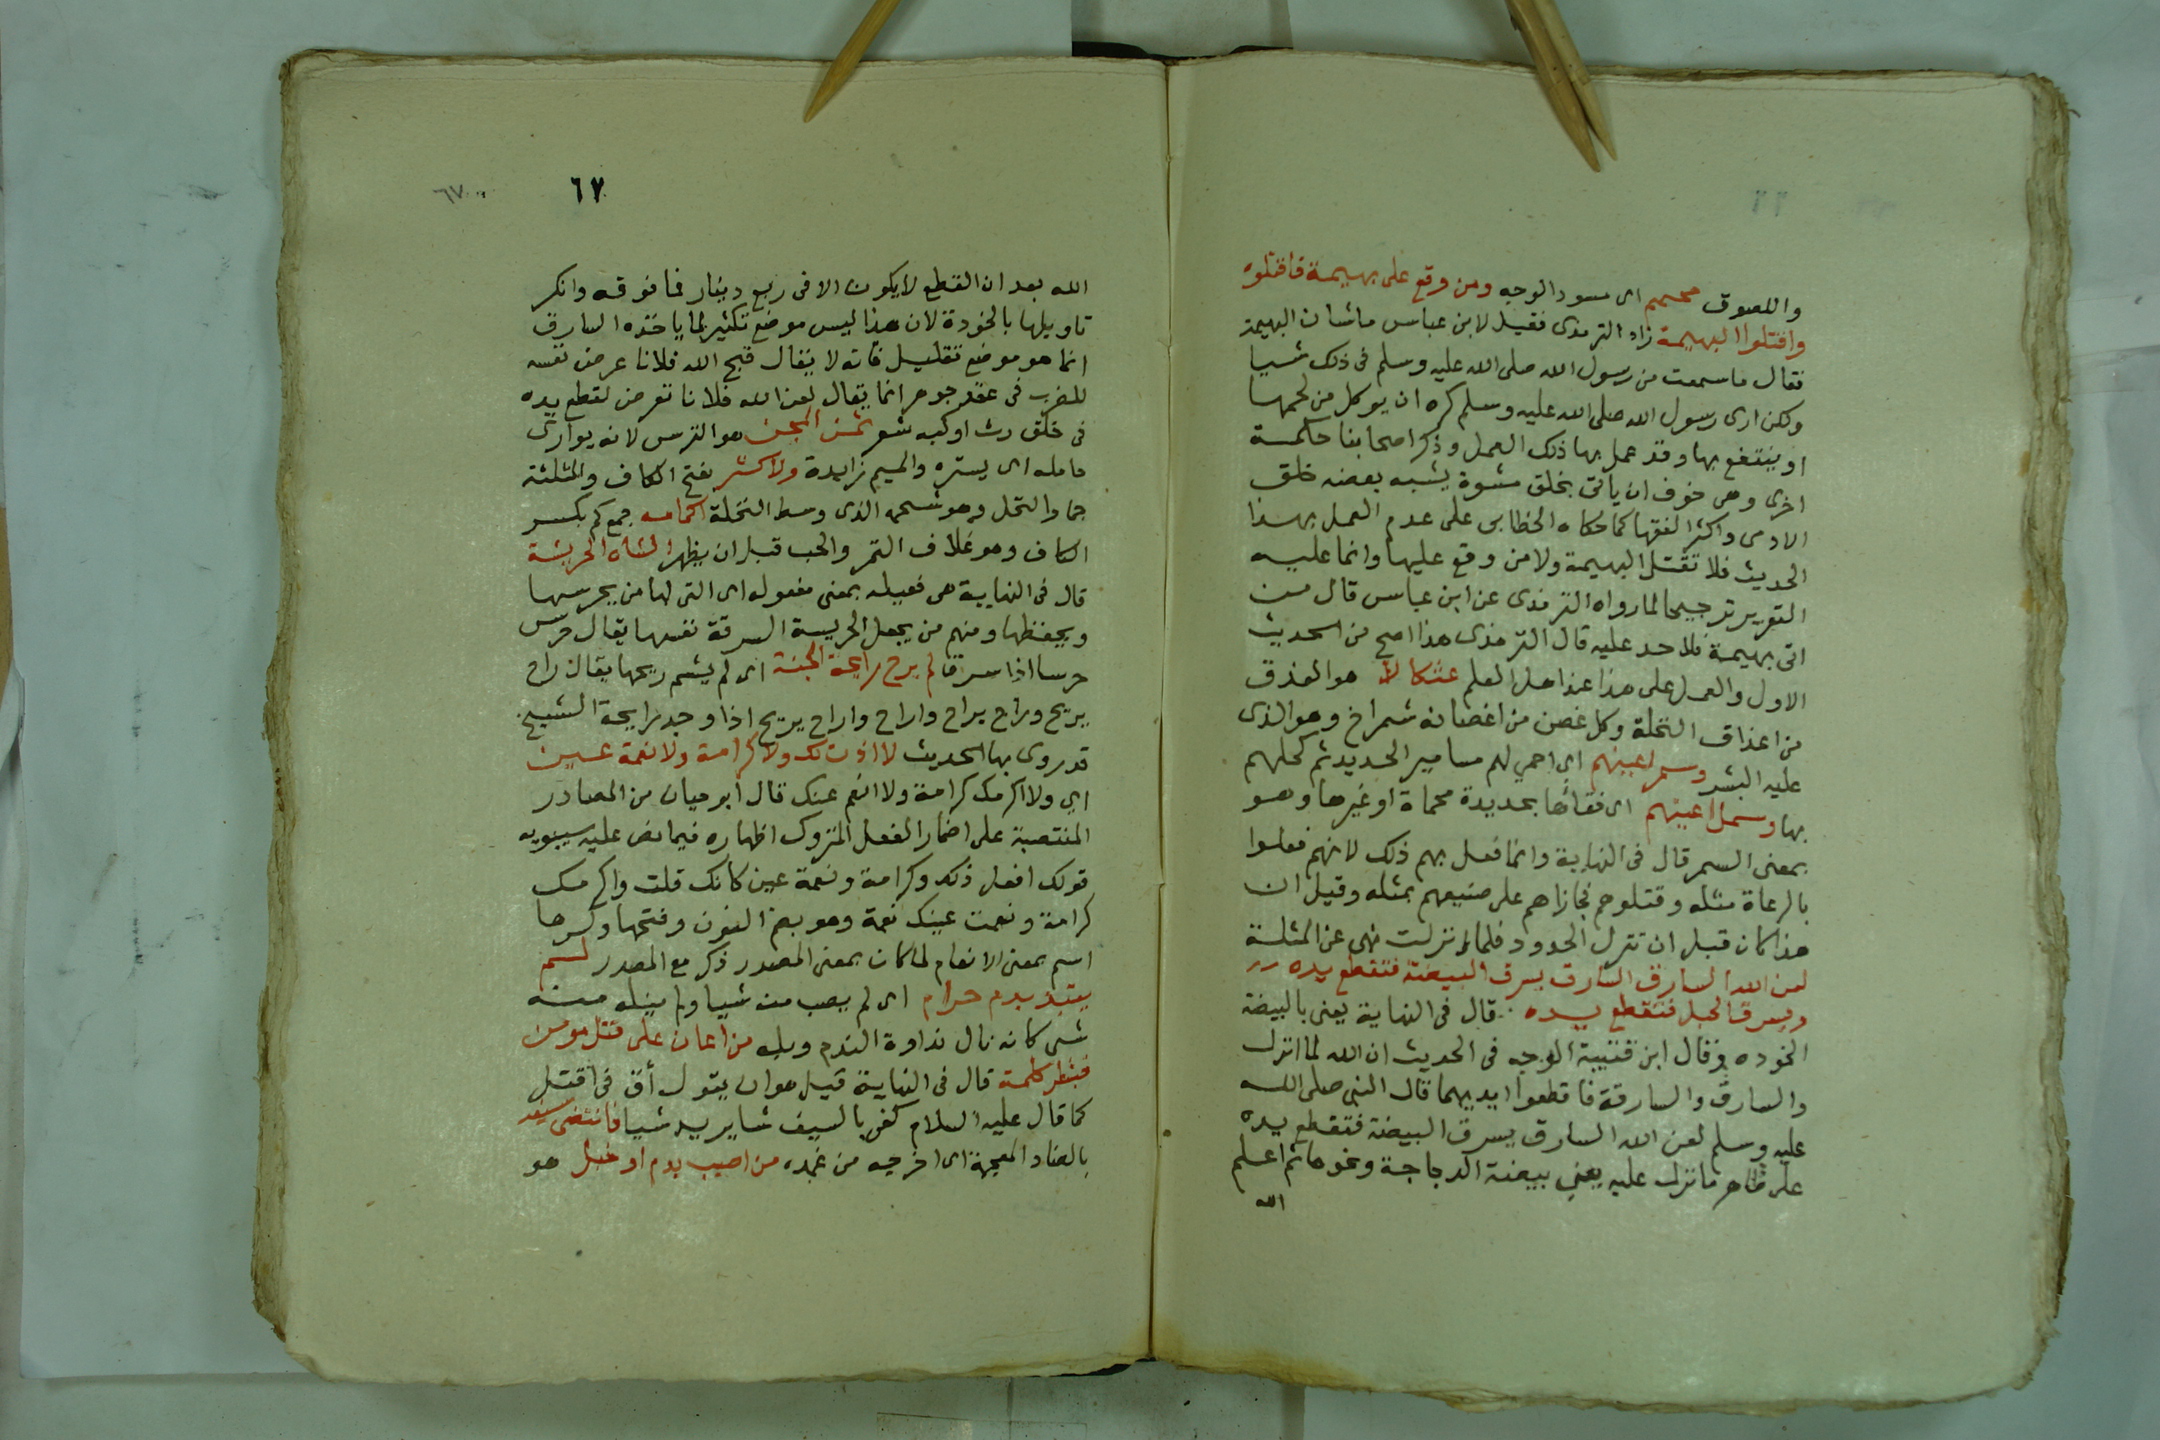 واللصوق محمم اى مسود الوجه ومن وقع على بهيمة فاقتلوه
واقتلوا البهيمة زاد الترمذى فقيل لابن عباس ماشان البهيمة
فقال ماسمعت من رسول الله صلى الله عليه وسلم فى ذلك شيا
ولكن ارى رسول الله صلى الله عليه وسلم كره ان يوكل من لحمها
او ينتفع بها وقد عمل بها ذلك العمل وذكر اصحابنا حكمة
اخرى وهى خوف ان ياتى بخلق مشوة يشبه بعضه خلق
الادمى واكثر الفقها كما حكاه الخطابى على عدم العمل بهذا
الحديث فلا تقتل البهيمة ولا من وقع عليها وانما عليه
التعزير ترجيحا لما رواه الترمذى عن ابن عباس قال من
اتى بهيمة فلا حد عليه قال الترمذى هذا اصح من الحديث
الاول والعمل على هذا عند اهل العلم عثكالا هو العذق
من اعذاق النخلة وكل غصن من اغصانه شمراخ وهو الذى
عليه البسر وسمر اعينهم اى احمى لهم مسامير الحديد ثم كحلهم
بها وسمل اعينهم اى فقأها بحديدة محماة او غيرها وهو
بمعنى السمر قال فى النهاية وانما فعل بهم ذلك لانهم فعلوا
بالرعاة مثله وقتلوهم فجازاهم على صنيعهم بمثله وقيل ان
هذا كان قبل ان تنزل الحدود فلما نزلت نهى عن المثلة
لعن الله السارق السارق يسرق البيضة فتقطع يده
ويسرق الحبل فتقطع يده قال فى النهاية يعنى بالبيضة
الخوده وقال ابن قتيبة الوجه فى الحديث ان الله لما انزل
والسارق والسارقة فاقطعوا ايديهما قال النبى صلى الله
عليه وسلم لعن الله السارق يسرق البيضة فتقطع يده
على ظاهر مانزل عليه يعنى بيضة الدجاجة ونحوها ثم اعلم
الله
٦٧
٦٧
الله بعد ان القطع لا يكون الا فى ربع دينار فما فوقه وانكر
تاويلها بالخودة لان هذا ليس موضع تكثير لما ياخذه السارق
انما هو موضع تقليل فانه لا يقال قبح الله فلانا عرض نفسه
للضرب فى عقد جوهر انما يقال لعن الله فلانا تعرض لقطع يده
فى خلق رث او كبه شعر ثمن المجن هو الترس لانه يوارى
حامله اى يستره والميم زايدة ولا كثر بفتح الكاف والمثلثة
جمار النخل وهو شحمه الذى وسط النخلة اكمامه جمع كم بكسر
الكاف وهو غلاف التمر والحب قبل ان يظهر الشاه الحريسة
قال فى النهاية هى فعيله بمعنى مفعوله اى التى لها من يحرسها
ويحفظها ومنهم من يجعل الحريسة السرقة نفسها يقال حرس
حرسا اذا سرق لم يرح رايحة الجنة اى لم يشم ريحها يقال راح
يريح وراح يراح واراح واراح يريح اذا وجد رايحة الشيخ
قد روى بها الحديث لا اذن لك ولا كرامة ولا نعمة عين
اى ولا اكرمك كرامة ولا انعم عينك قال ابو حيان من المصادر
المنتصبة على اضمار الفعل المتروك اظهاره فيما نص عليه سيبويه
قولك افعل ذلك وكرامة ونعمة عين كانك قلت واكرمك
كرامة ونعمت عينك نعمة وهو بضم النون وفتحها وكسرها
اسم بمعنى الانعام لما كان بمعنى المصدر ذكر مع المصدر لم
يتند بدم حرام اى لم يصب منه شيا ولم ينله منه
شى كانه نال نداوة الندم وبله من اعان على قتل مومن
بشطر كلمة قال فى النهاية قيل هو ان يقول أق فى اقتل
كما قال عليه السلام كفى بالسيف شا يريد شيا فانتضى سيفه
بالضاد المعجمة اى اخرجه من غمده من اصيب بدم او خبل هو